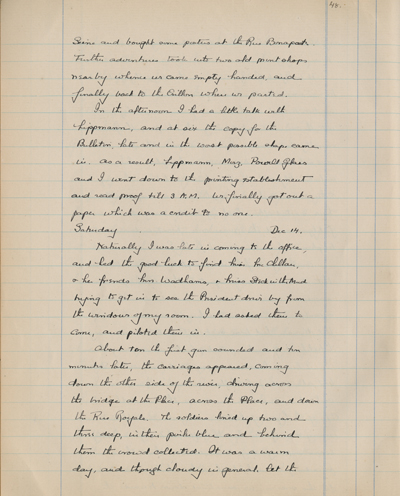 40.
Seine and bought some posters at the Rue Bonaparte.
Further adventures took into two old print shops
nearby whence we came empty-handed, and
finally back to the Crillon where we parted.
In the afternoon I had a little talk with
Lippmann, and at six the copy for the
Bulletin, late and in the worst possible shape came
in. As a result, Lippmann, Merz,
and I went down to the printing establishment
and read proof till 3 A.M. We finally got out a
paper which was a credit to no one.
Saturday Dec 14.
Naturally I was late in coming to the office,
and had the good luck to find
& her friends Mrs Wadhams, & Miss
trying to get in to see the President drive by from
the windows of my room. I had asked them to
come, and piloted them in.
About ten the first gun sounded and ten
minutes later, the carriages appeared, coming
down the other side of the river, driving across
the bridge at the Place, across the Place, and down
the Rue Royale. The soldiers lined up two and
three deep, in their pale blue and behind
them the crowd collected. It was a warm
day, and though cloudy in general let the